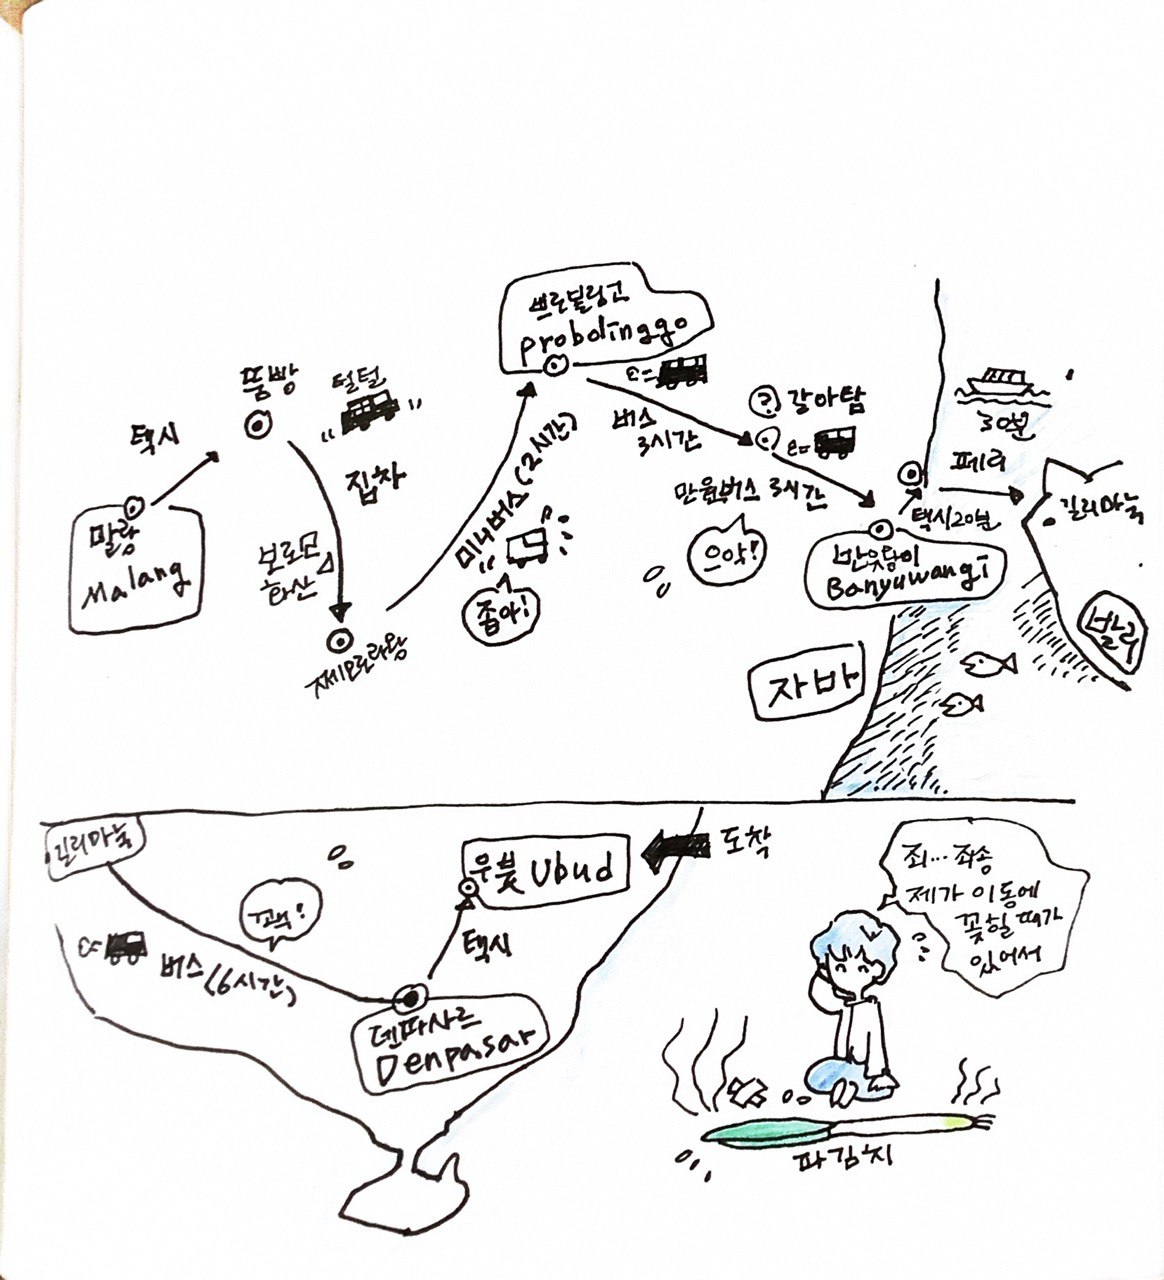 택시
뚬빵
털털
짚차
말랑
Malang
보로모
화산
제모로라왕
미니버스 (2시간)
좁아!
쁘로볼링고
probolinggo
버스
3시간
?
갈아탐
만원버스 3시간
으악!
택시20분
반유왕이
Banyuwangi
30분
페리
길리마눅
발리
자바
길리마눅
버스 (6시간)
덴파사르
Denpasar
택시
우붓 Ubud
도착
죄... 죄송
제가 이동에
꽂힐 때가
있어서
파김치